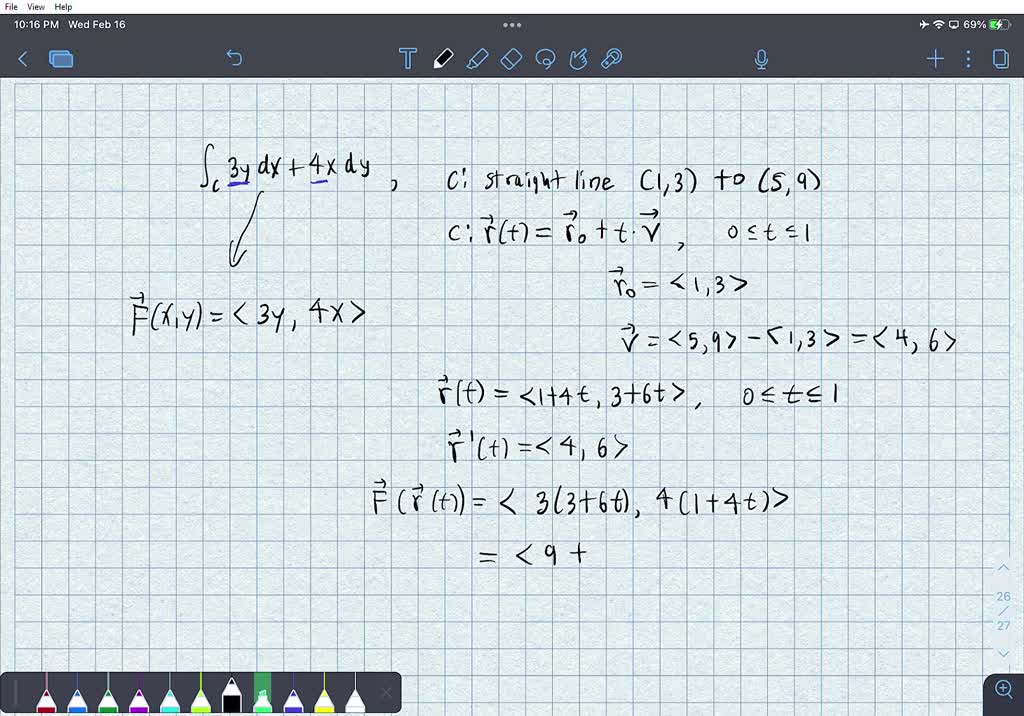 File View Help
10:16 PM Wed Feb 16 69%
∫_C 3y dx + 4x dy , C: straight line (1,3) to (5,9)
C: r⃗(t) = r⃗₀ + t · v⃗ , 0 ≤ t ≤ 1
r⃗₀ = <1,3>
F⃗(x,y) = <3y, 4x>
v⃗ = <5,9> − <1,3> = <4, 6>
r⃗(t) = <1+4t, 3+6t>, 0 ≤ t ≤ 1
r⃗'(t) = <4, 6>
F⃗(r⃗(t)) = < 3(3+6t), 4(1+4t)>
= < 9 +
26
/
27